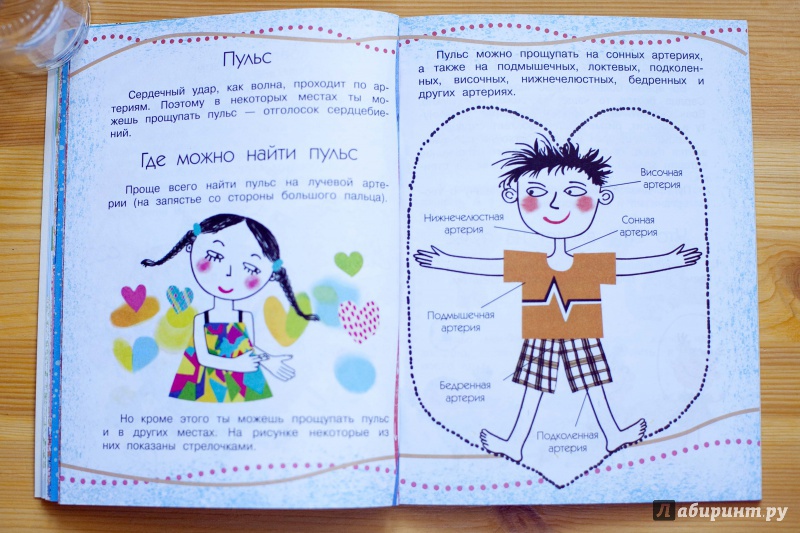 Пульс
Сердечный удар, как волна, проходит по ар-
териям. Поэтому в некоторых местах ты мо-
жешь прощупать пульс — отголосок сердцебие-
ний.
Где можно найти пульс
Проще всего найти пульс на лучевой арте-
рии (на запястье со стороны большого пальца).
Но кроме этого ты можешь прощупать пульс
и в других местах. На рисунке некоторые из
них показаны стрелочками.
Пульс можно прощупать на сонных артериях,
а также на подмышечных, локтевых, подколен-
ных, височных, нижнечелюстных, бедренных и
других артериях.
Височная
артерия
Нижнечелюстная
артерия
Сонная
артерия
Подмышечная
артерия
Бедренная
артерия
Подколенная
артерия
Лабиринт.ру